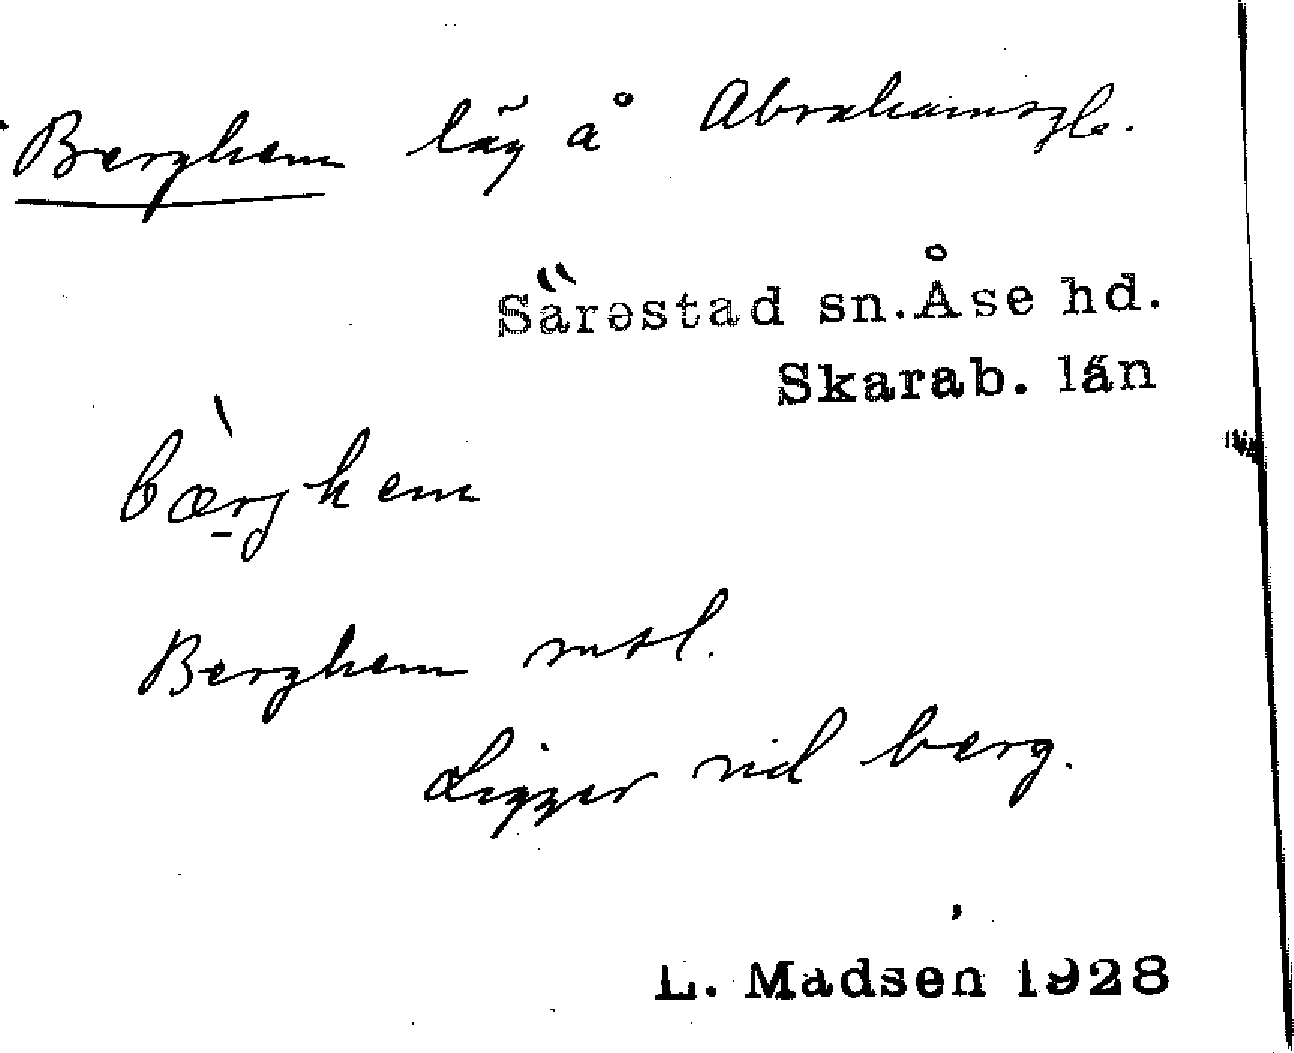 Berghem läg å Abrahamsgle.
Särestad sn. Åse hd.
Skarab. län
bærghem
Berghem mtl.
Ligger vid berg.
L. Madsen 1928